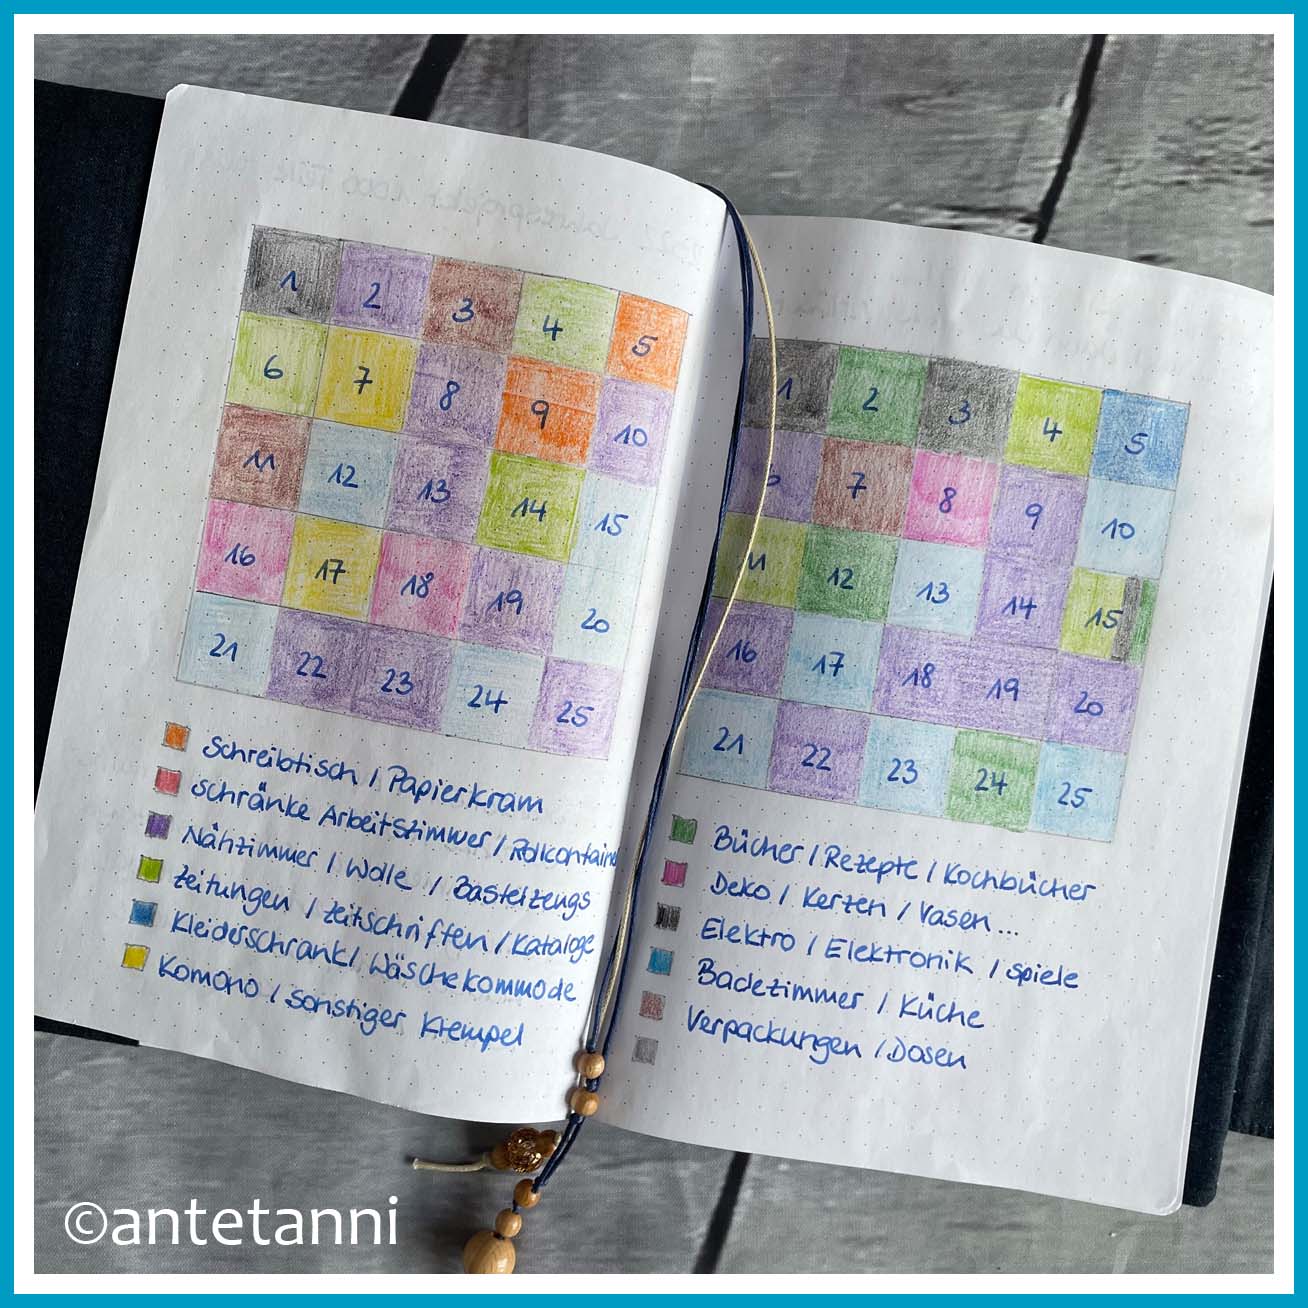 1 2 3 4 5
6 7 8 9 10
11 12 13 14 15
16 17 18 19 20
21 22 23 24 25
Schreibtisch / Papierkram
Schränke Arbeitszimmer / Rollcontain
Nähzimmer / Wolle / Bastelzeugs
Zeitungen / Zeitschriften / Kataloge
Kleiderschrank / Wäschekommode
Komono / sonstiger Krempel
1 2 3 4 5
7 8 9 10
11 12 13 14 15
16 17 18 19 20
21 22 23 24 25
Bücher / Rezepte / Kochbücher
Deko / Kerzen / Vasen...
Elektro / Elektronik / Spiele
Badezimmer / Küche
Verpackungen / Dosen
©antetanni